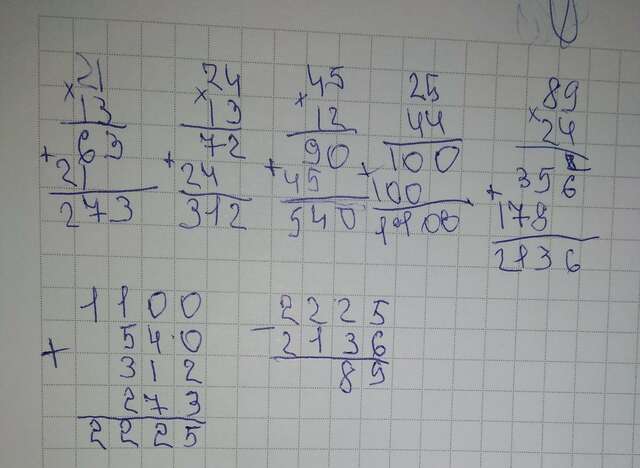 21 24 45 25 89
× 13 × 13 × 12 44 × 24
63 72 90 100 356
+ 21 + 24 + 45 + 100 + 178
273 312 540 1100 2136
1100 2225
+ 540 − 2136
312 89
273
2225